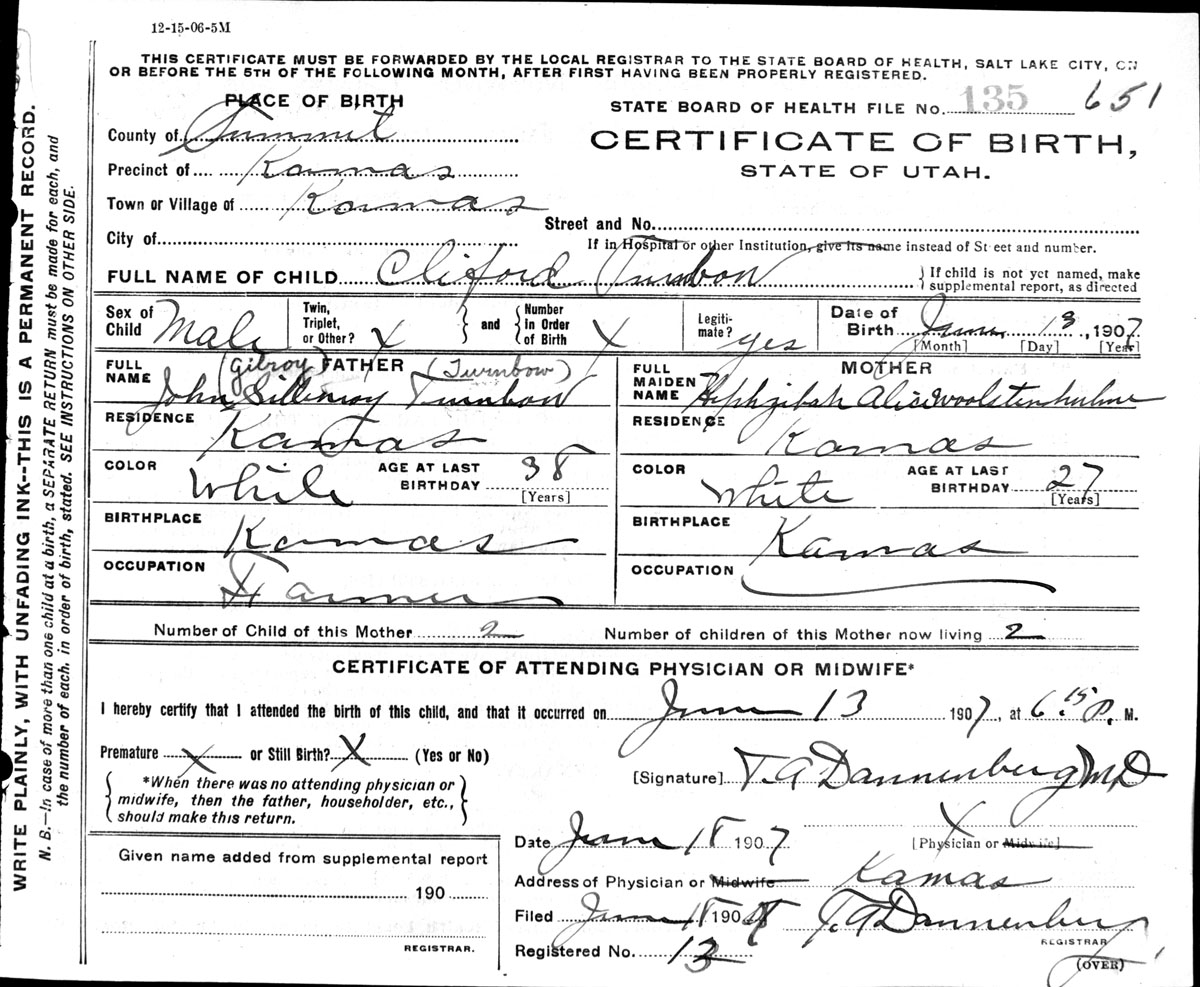 12-15-06-5M
THIS CERTIFICATE MUST BE FORWARDED BY THE LOCAL REGISTRAR TO THE STATE BOARD OF HEALTH, SALT LAKE CITY, ON
OR BEFORE THE 5TH OF THE FOLLOWING MONTH, AFTER FIRST HAVING BEEN PROPERLY REGISTERED.
PLACE OF BIRTH
STATE BOARD OF HEALTH FILE No. 135 651
County of Summit
CERTIFICATE OF BIRTH,
Precinct of Kamas
STATE OF UTAH.
Town or Village of Kamas
Street and No.
City of
If in Hospital or other Institution, give its name instead of Street and number.
FULL NAME OF CHILD Cliford Turnbow
} If child is not yet named, make
supplemental report, as directed
Sex of Child Male
Twin, Triplet, or Other? X
and
Number In Order of Birth X
Legiti-mate? yes
Date of Birth June 13, 1907
[Month] [Day] [Year]
FATHER
FULL NAME (Gilroy) (Turnbow)
John Gillenroy Turnbow
MOTHER
FULL MAIDEN NAME Hephzibah Alise Woolstenhulme
RESIDENCE Kamas
RESIDENCE Kamas
COLOR White AGE AT LAST BIRTHDAY 38 [Years]
COLOR White AGE AT LAST BIRTHDAY 27 [Years]
BIRTHPLACE Kamas
BIRTHPLACE Kamas
OCCUPATION Farmer
OCCUPATION
Number of Child of this Mother 2 Number of children of this Mother now living 2
CERTIFICATE OF ATTENDING PHYSICIAN OR MIDWIFE*
I hereby certify that I attended the birth of this child, and that it occurred on June 13 1907, at 6.15 P. M.
Premature X or Still Birth? X (Yes or No)
[Signature] T. A Dannenberg MD
*When there was no attending physician or
midwife, then the father, householder, etc.,
should make this return.
X
Date June 18 1907 [Physician or Midwife]
Given name added from supplemental report
190
REGISTRAR.
Address of Physician or Midwife Kamas
Filed June 18 190 T. A Dannenberg
REGISTRAR
Registered No. 13
(OVER)
WRITE PLAINLY, WITH UNFADING INK--THIS IS A PERMANENT RECORD.
N. B.—In case of more than one child at a birth, a SEPARATE RETURN must be made for each, and
the number of each, in order of birth, stated. SEE INSTRUCTIONS ON OTHER SIDE.